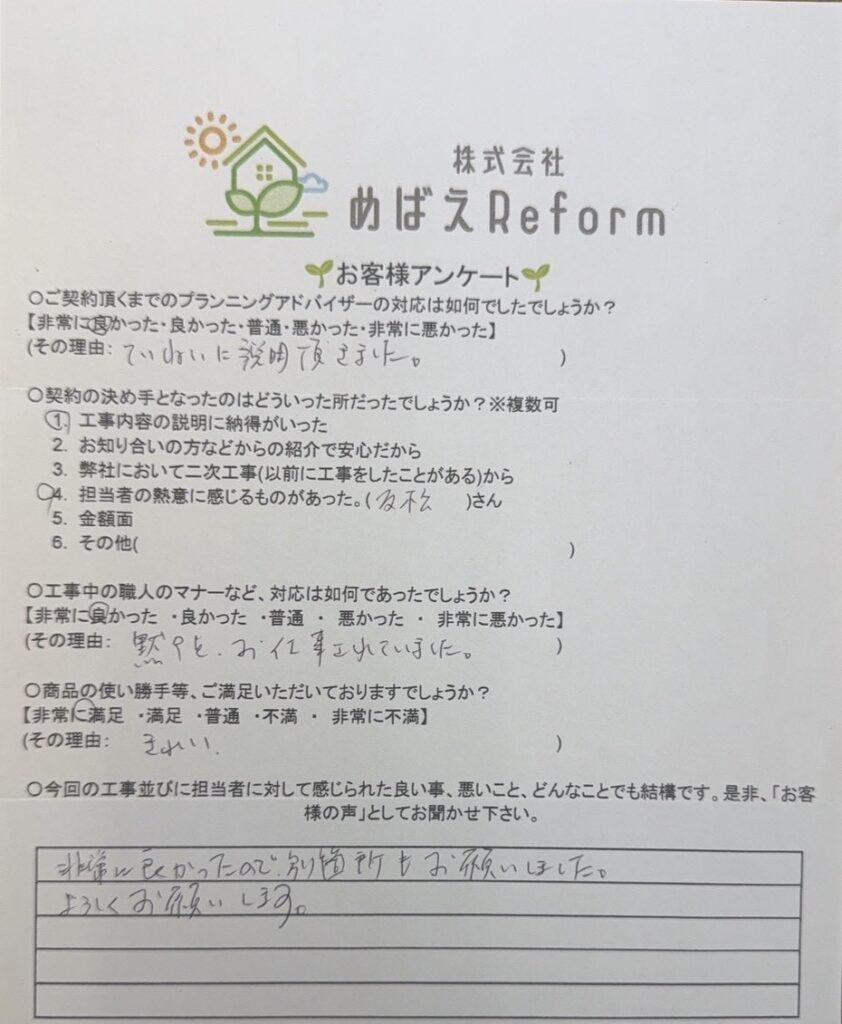 株式会社
めばえReform
お客様アンケート
○ご契約頂くまでのプランニングアドバイザーの対応は如何でしたでしょうか？
【非常に良かった・良かった・普通・悪かった・非常に悪かった】
(その理由: ていねいに説明頂きました。 )
○契約の決め手となったのはどういった所だったでしょうか？※複数可
1. 工事内容の説明に納得がいった
2. お知り合いの方などからの紹介で安心だから
3. 弊社において二次工事(以前に工事をしたことがある)から
4. 担当者の熱意に感じるものがあった。(友松 )さん
5. 金額面
6. その他( )
○工事中の職人のマナーなど、対応は如何であったでしょうか？
【非常に良かった ・良かった ・普通 ・ 悪かった ・ 非常に悪かった】
(その理由: 黙々と、お仕事されていました。 )
○商品の使い勝手等、ご満足いただいておりますでしょうか？
【非常に満足 ・満足 ・普通 ・不満 ・ 非常に不満】
(その理由: きれい. )
○今回の工事並びに担当者に対して感じられた良い事、悪いこと、どんなことでも結構です。是非、「お客
様の声」としてお聞かせ下さい。
非常に良かったので、別箇所もお願いしました。
よろしくお願いします。